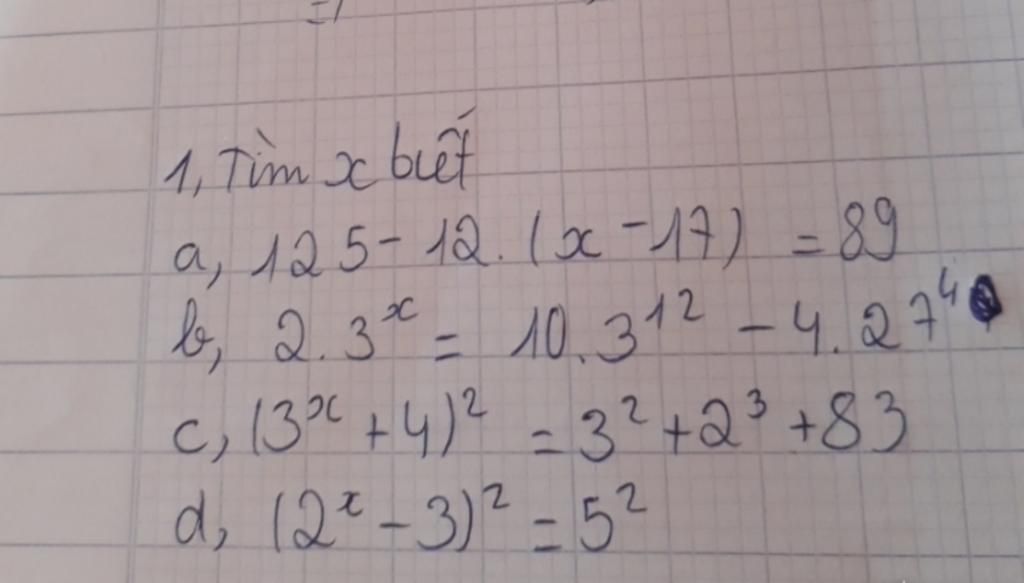 1, Tìm x biết
a, 125 - 12. (x - 17) = 89
b, 2. 3^x = 10. 3^12 - 4. 27^4
c, (3^x + 4)^2 = 3^2 + 2^3 + 83
d, (2^x - 3)^2 = 5^2